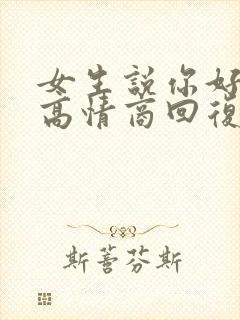 女生說你好
高情商回復
斯蕾芬斯